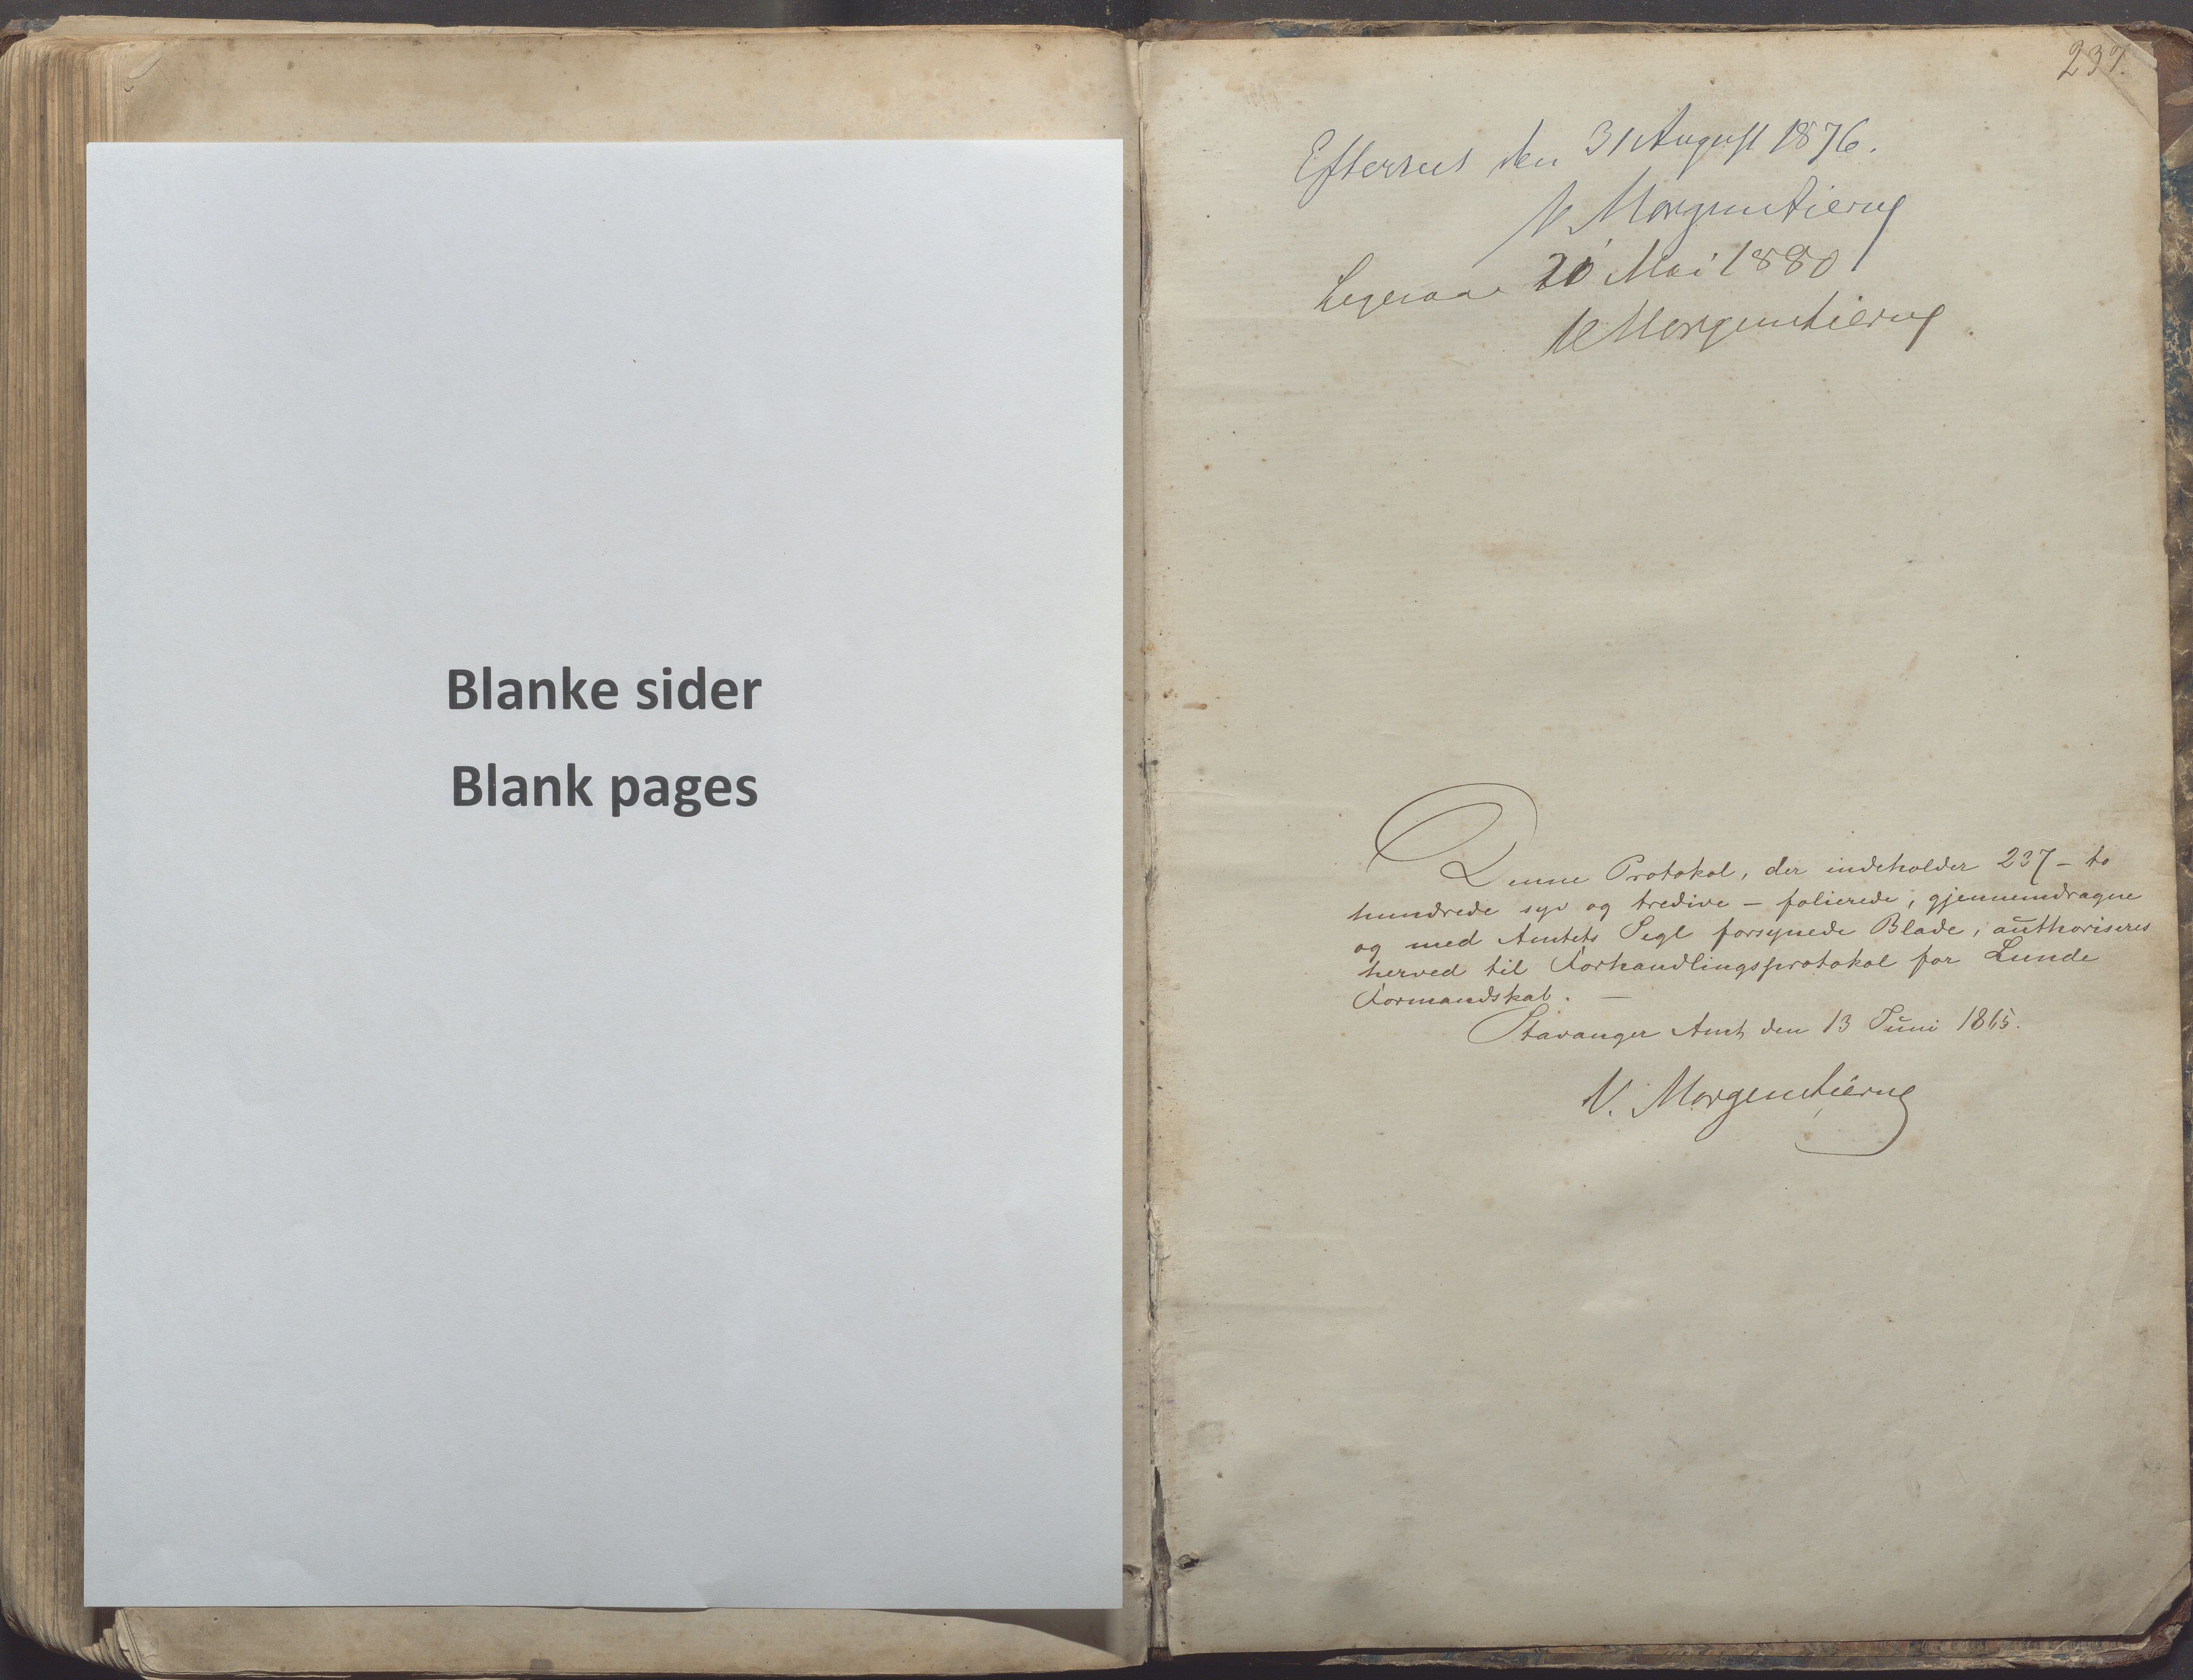 Blanke sider
Blank pages
237.
Efterseet den 31 August 1876.
V Morgenstierne
Ligesaa 20 Mai 1880
V Morgenstierne
Denne Protokol, der indeholder 237 – to
hundrede syv og tredive – folierede, gjennemdragne
og med Amtets Segl forsynede Blade, authoriseres
herved til Forhandlingsprotokol for Lunde
Formandskab. —
Stavanger Amt den 13 Juni 1865.
V. Morgenstierne